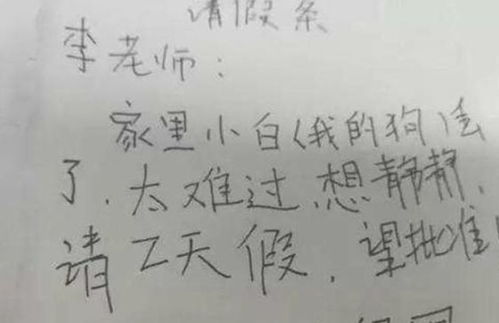 请假条
李老师：
家里小白(我的狗)丢
了，太难过，想静静，
请2天假，望批准!